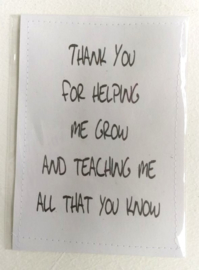 THANK YOU
FOR HELPING
ME GROW
AND TEACHING ME
ALL THAT YOU KNOW